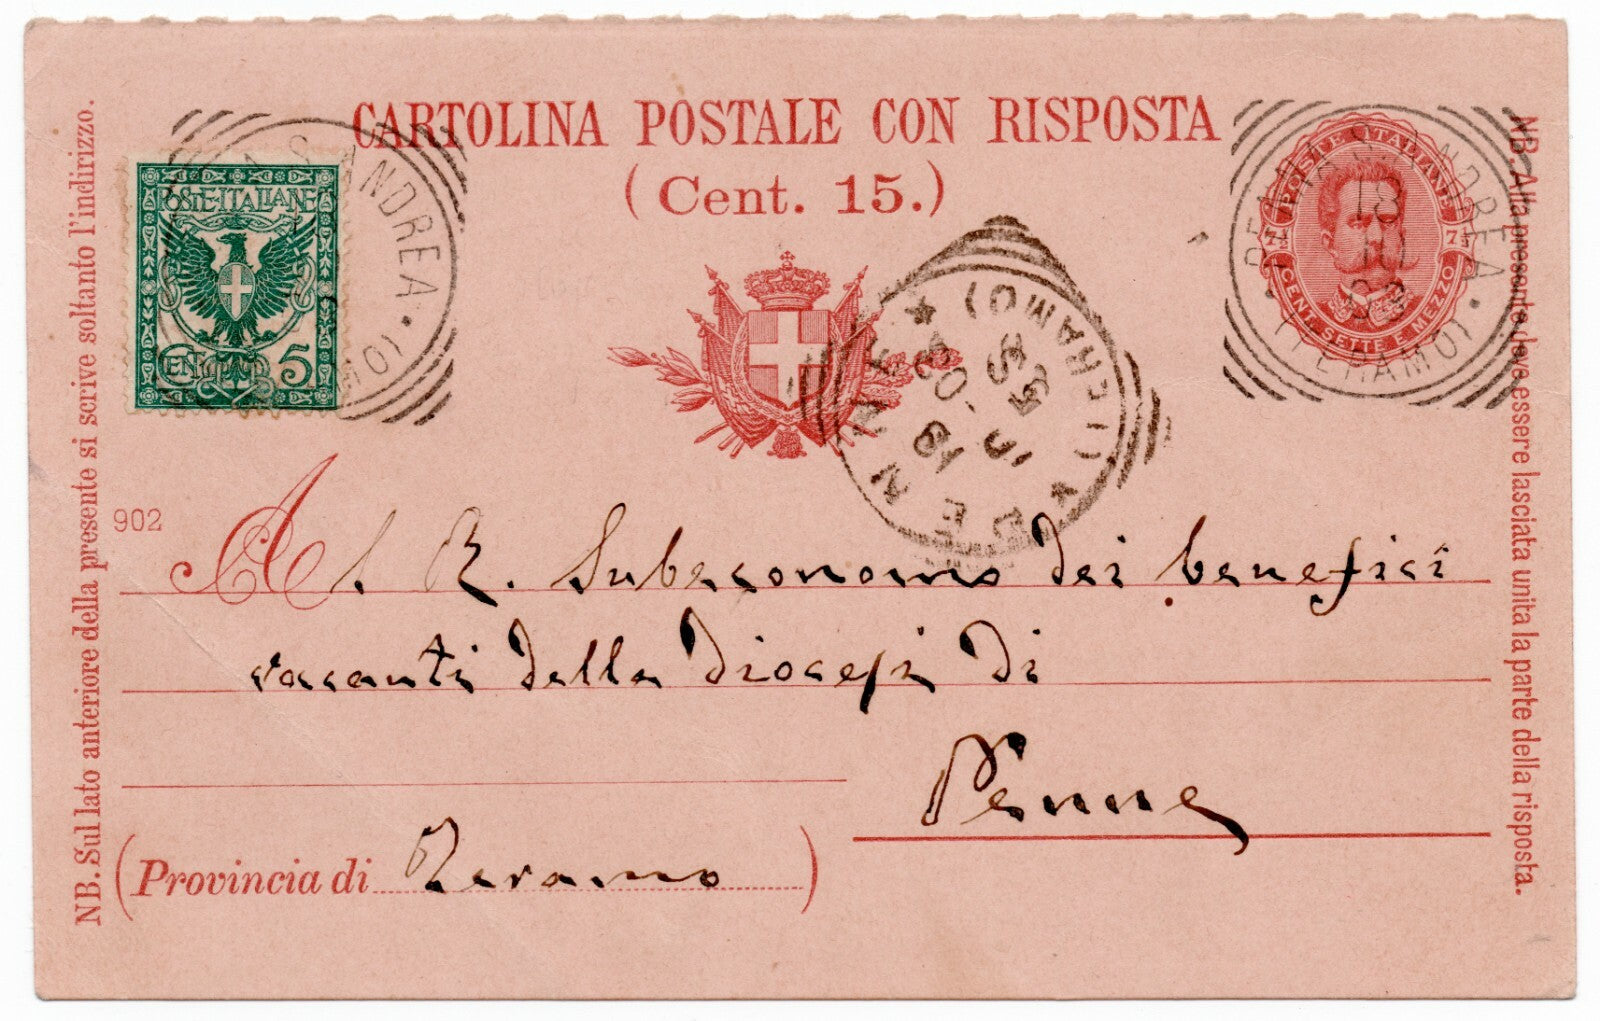 CARTOLINA POSTALE CON RISPOSTA
(Cent. 15.)
POSTE·ITALIANE
CENT 5
POSTE ITALIANE
7½ 7½
CENT. SETTE E MEZZO
S. ANDREA
S. ANDREA
(TERAMO)
18
10
PENNE
(TERAMO)
902
Al R. Subeconomo dei benefici
vacanti della Diocesi di
Penne
(Provincia di Teramo)
NB. Sul lato anteriore della presente si scrive soltanto l'indirizzo.
NB. Alla presente deve essere lasciata unita la parte della risposta.